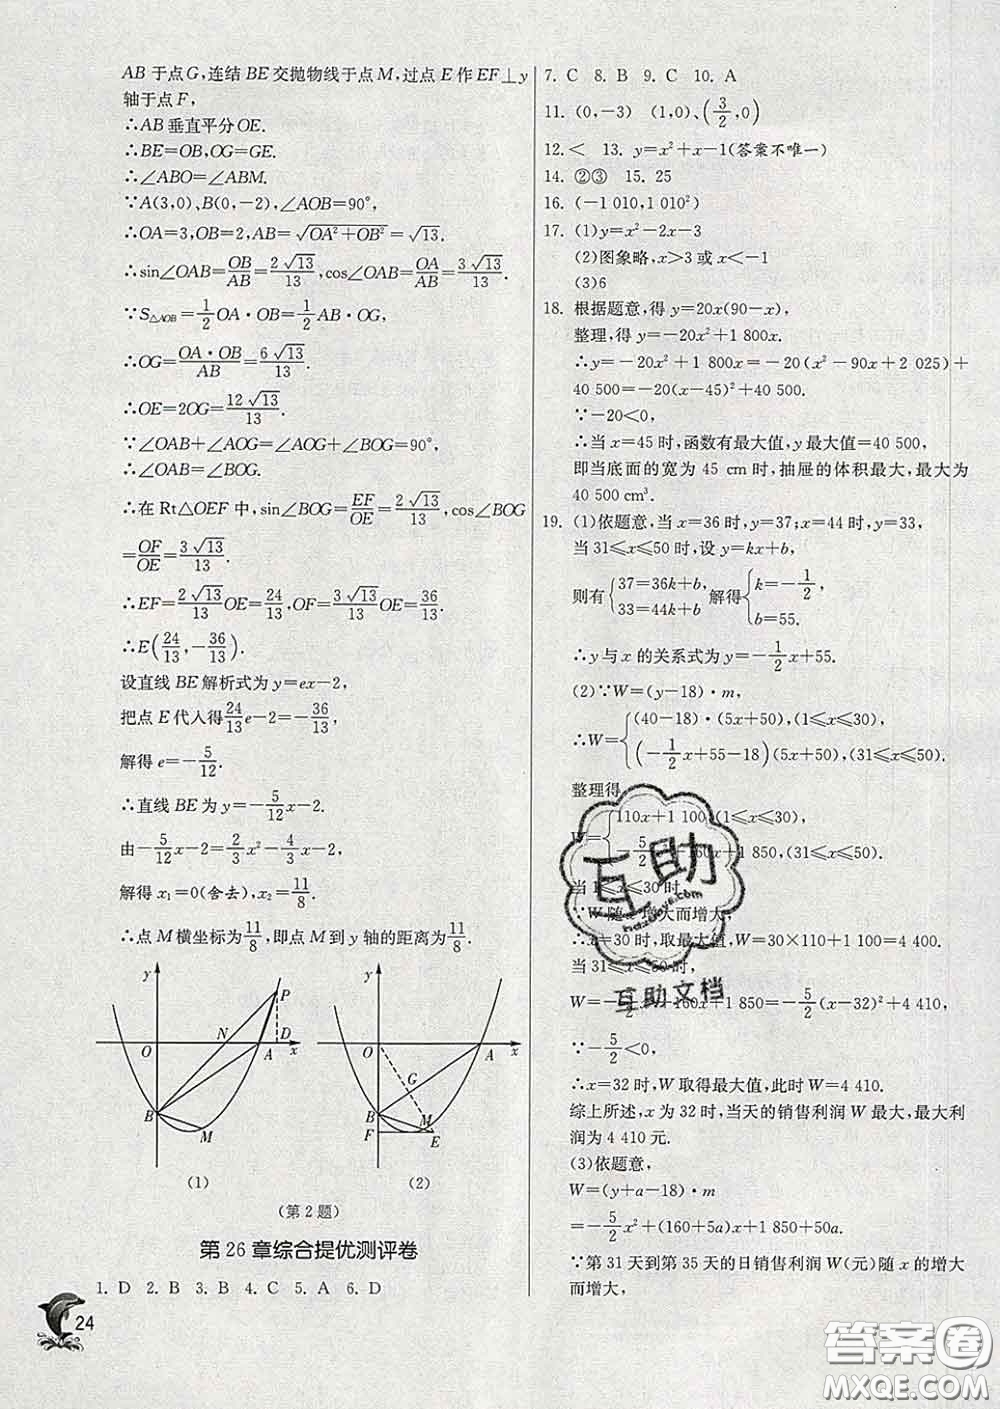 AB于点G,连结BE交抛物线于点M,过点E作EF⊥y
轴于点F,
∴AB垂直平分OE.
∴BE=OB,OG=GE.
∴∠ABO=∠ABM.
∵A(3,0)、B(0,-2),∠AOB=90°,
∴OA=3,OB=2,AB=√(OA²+OB²)=√13.
∴sin∠OAB=OB/AB=2√13/13,cos∠OAB=OA/AB=3√13/13.
∵S△AOB=1/2OA·OB=1/2AB·OG,
∴OG=OA·OB/AB=6√13/13.
∴OE=2OG=12√13/13.
∵∠OAB+∠AOG=∠AOG+∠BOG=90°,
∴∠OAB=∠BOG.
∴在Rt△OEF中,sin∠BOG=EF/OE=2√13/13,cos∠BOG
=OF/OE=3√13/13.
∴EF=2√13/13OE=24/13,OF=3√13/13OE=36/13.
∴E(24/13,-36/13).
设直线BE解析式为y=ex-2,
把点E代入得24/13e-2=-36/13,
解得e=-5/12.
∴直线BE为y=-5/12x-2.
由-5/12x-2=2/3x²-4/3x-2,
解得x₁=0(舍去),x₂=11/8.
∴点M横坐标为11/8,即点M到y轴的距离为11/8.
y
P
N
D
O
A
x
B
M
(1)
y
O
A
x
G
B
M
F
E
(2)
(第2题)
第26章综合提优测评卷
1. D 2. B 3. B 4. C 5. A 6. D
24
7. C 8. B 9. C 10. A
11. (0,-3) (1,0)、(3/2,0)
12.< 13. y=x²+x-1(答案不唯一)
14. ②③ 15. 25
16. (-1 010,1 010²)
17. (1)y=x²-2x-3
(2)图象略,x>3或x<-1
(3)6
18. 根据题意,得y=20x(90-x),
整理,得y=-20x²+1 800x.
∴y=-20x²+1 800x=-20(x²-90x+2 025)+
40 500=-20(x-45)²+40 500.
∵-20<0,
∴当x=45时,函数有最大值,y最大值=40 500,
即当底面的宽为45 cm时,抽屉的体积最大,最大为
40 500 cm³.
19. (1)依题意,当x=36时,y=37;x=44时,y=33,
当31≤x≤50时,设y=kx+b,
则有{37=36k+b, 33=44k+b, 解得{k=-1/2, b=55.
∴y与x的关系式为y=-1/2x+55.
(2)∵W=(y-18)·m,
∴W={(40-18)·(5x+50),(1≤x≤30), (-1/2x+55-18)(5x+50),(31≤x≤50).
整理得,
W={110x+1 100,(1≤x≤30), -5/2x²+160x+1 850,(31≤x≤50).
当1≤x≤30时,
∵W随x增大而增大,
∴x=30时,取最大值,W=30×110+1 100=4 400.
当31≤x≤50时,
W=-5/2x²+160x+1 850=-5/2(x-32)²+4 410,
∵-5/2<0,
∴x=32时,W取得最大值,此时W=4 410.
综上所述,x为32时,当天的销售利润W最大,最大利
润为4 410元.
(3)依题意,
W=(y+a-18)·m
=-5/2x²+(160+5a)x+1 850+50a.
∵第31天到第35天的日销售利润W(元)随x的增大
而增大,
互助
hazuoye.com
互助文档
答案卷
MXQE.COM